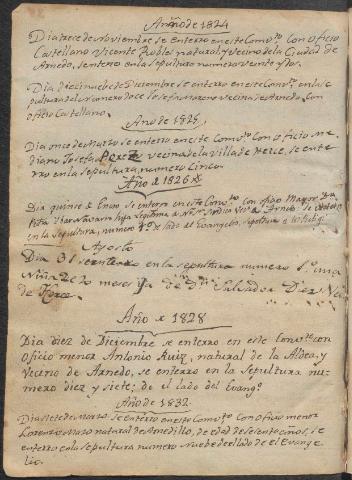 Año de 1824
Dia trece de Noviembre se enterro en este Comvto. Con oficio
Castellano Vicente Robles natural y Vecino de la Ciudad de
Arnedo, se entero en la sepultura numero Veinte y dos.
Dia diecinuebe de Diciembre se enterro en este Comvto. en la se
pultura del numero doce Josefa Moreno Vecina de Arnedo. Con
oficio Castellano.
Año de 1825
Dia once de Marzo se enterro en este Comvto. Con oficio Me
diano Josefa Perez Vecina de la Villa de Herce, se ente
rro en la sepultura numero Cinco.
Año de 1826
Dia quince de Enero se enterro en este Convto. con oficio Mayor
hija legitima de Arnedo
en la Sepultura, numero 1º de lado del Evangelio,
Agosto
Dia 31 se enterro en la sepultura numero 1º una
Niña de 20 meses ija de Dn. Salvador Diez
de Herce
Año de 1828
Dia diez de Diciembre se enterro en este Convto. con
Oficio menor Antonio Ruiz, natural de la Aldea, y
Vecino de Arnedo, se enterro en la Sepultura nu-
mero diez y siete; de el lado del Evango.
Año de 1832.
Dia siete de Marzo se enterro en este Comvto. Con oficio menor
Lorenzo Mazo natural de Arnedillo, de edad de sesenta años, se
enterro en la sepultura numero Nuebe de el lado de el Evange
lio.